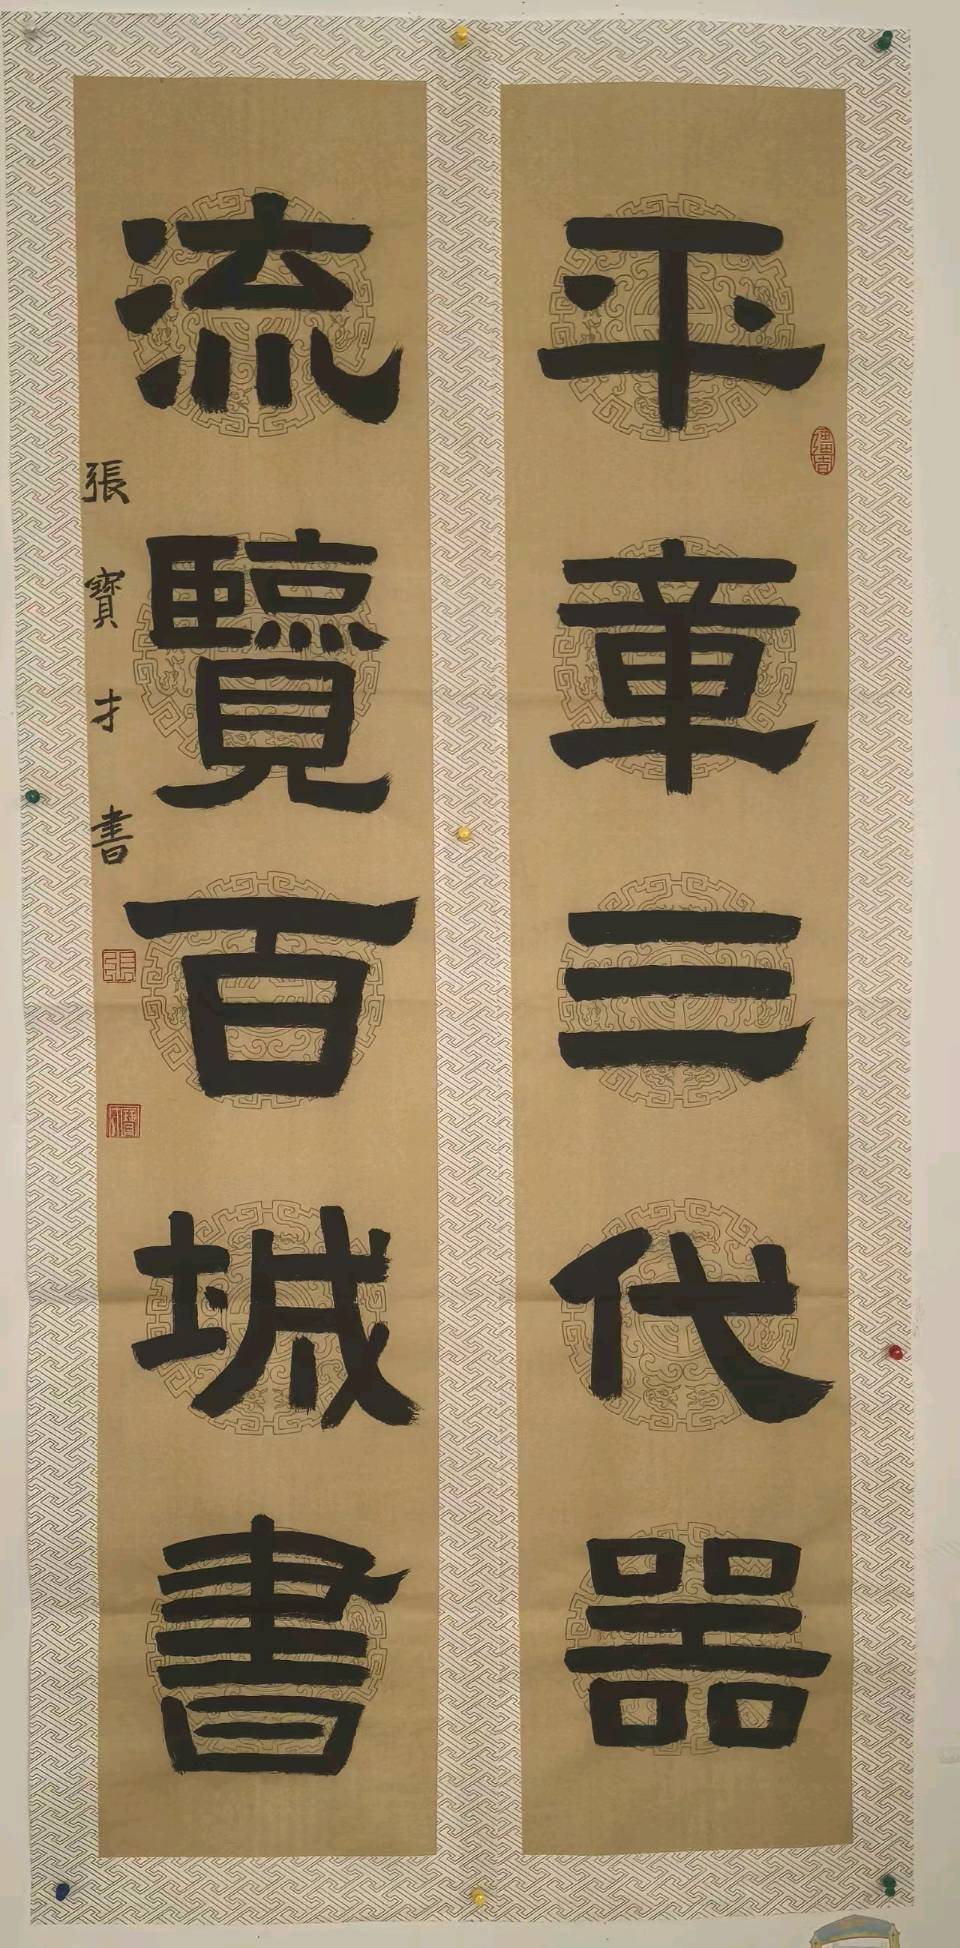 平章三代器
流覽百城書
張寶才書
張